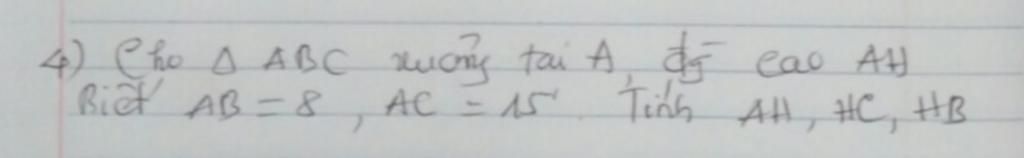 4) Cho Δ ABC vuông tại A, đg cao AH
Biết AB = 8, AC = 15 Tính AH, HC, HB